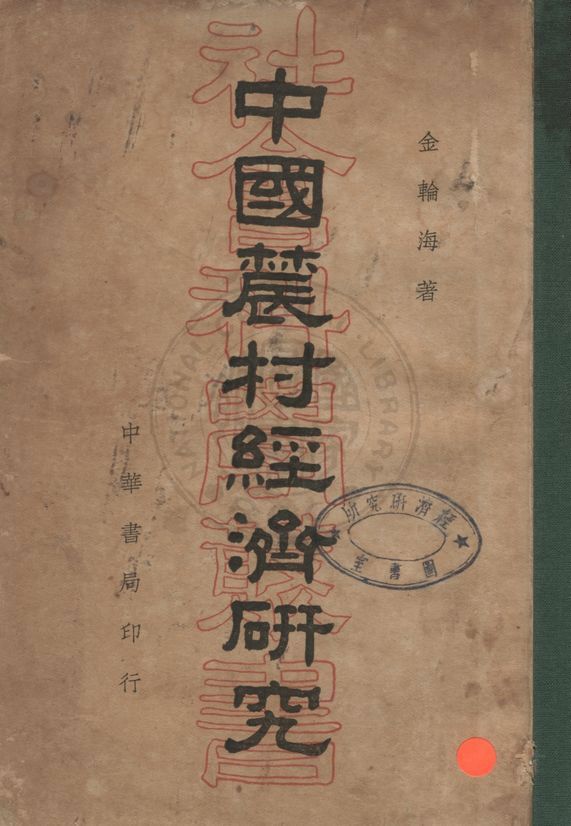 金輪海著
中國農村經濟研究
社會科學叢書
中華書局印行
經濟研究所
圖書室
NATIONAL
LIBRARY